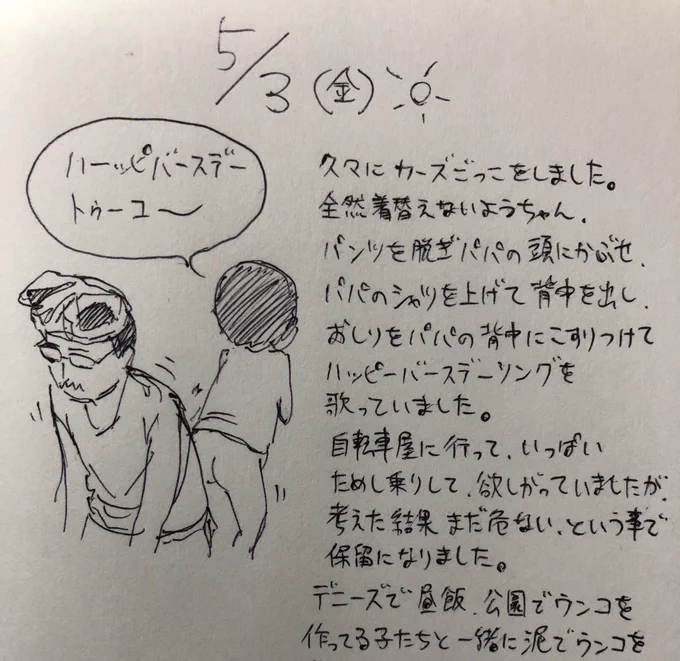 5/3(金)
ハーッピバースデー
トゥーユ〜
久々に カーズごっこをしました。
全然着替えないようちゃん、
パンツを脱ぎパパの頭にかぶせ、
パパのシャツを上げて背中を出し、
おしりをパパの背中にこすりつけて
ハッピーバースデーソングを
歌っていました。
自転車屋に行って、いっぱい
ためし乗りして、欲しがっていましたが、
考えた結果まだ危ない、という事で
保留になりました。
デニーズで昼飯、公園でウンコを
作ってる子たちと一緒に泥でウンコを